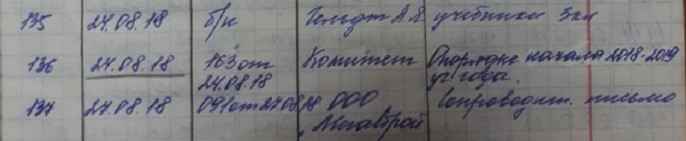 135 24.08.18 б/н Гельдт А.Я. учебники 3 кл
136 24.08.18 163 от Комитет О порядке начала 2018-2019
24.08.18 уч года.
137 24.08.18 091 от 27.08.18 ООО Сопроводит. письмо
"Мегастрой